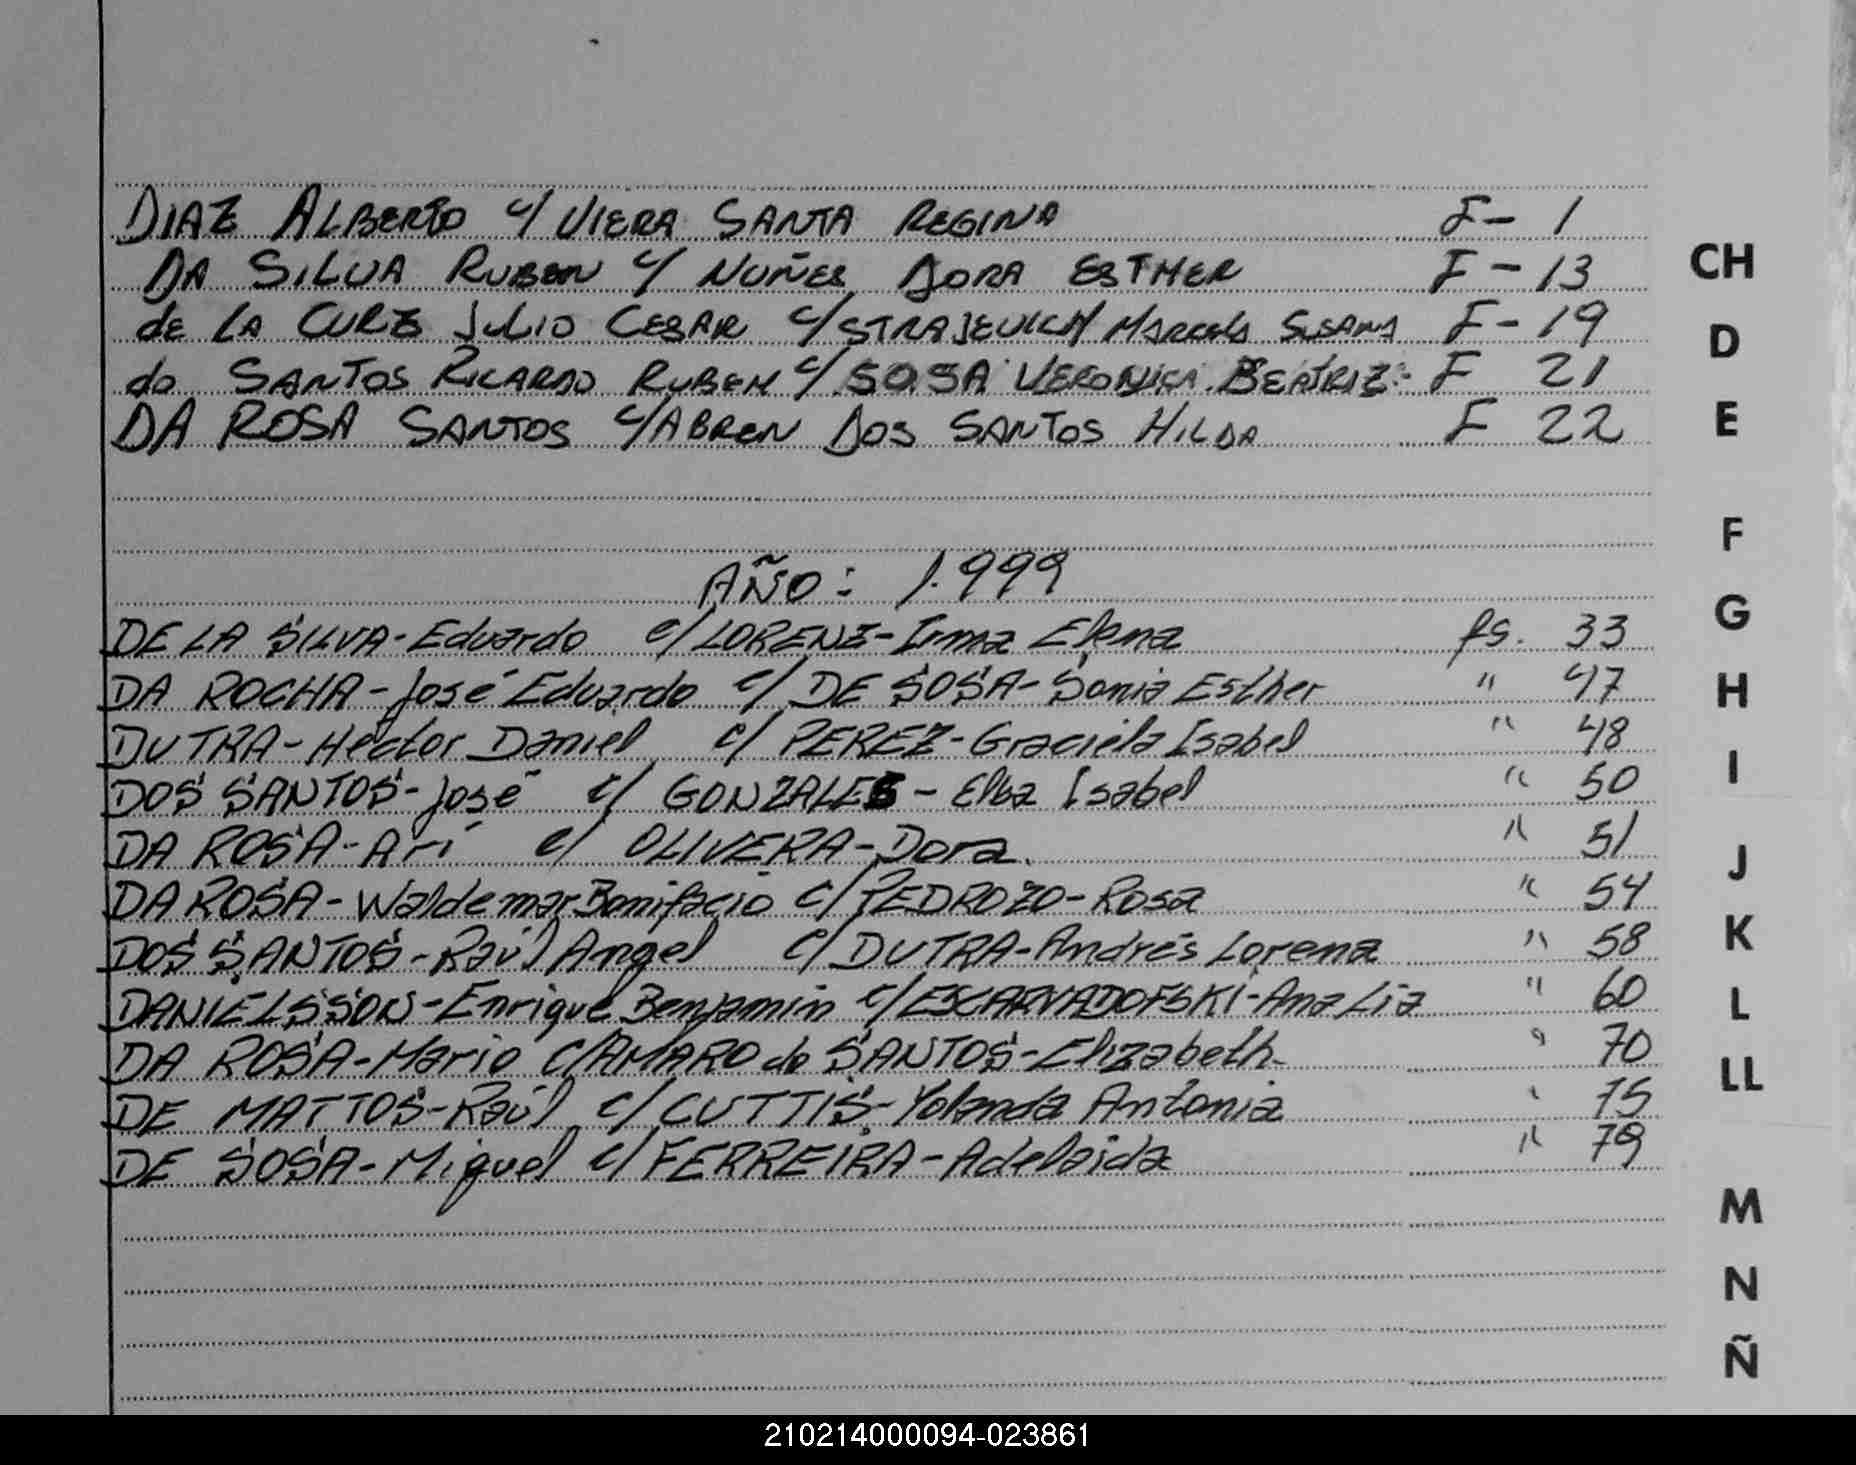 DIAZ ALBERTO c/ VIERA SANTA REGINA F- 1
DA SILVA RUBEN c/ NUÑES DORA ESTHER F-13
de LA CURZ JULIO CESAR c/ STRAJEVICH MARCELA SUSANA F-19
do SANTOS RICARDO RUBEN c/ SOSA VERONICA BEATRIZ- F 21
DA ROSA SANTOS c/ ABREN DOS SANTOS HILDA F 22
AÑO: 1.999
DE LA SILVA-Eduardo c/ LORENZ-Irma Elena fs. 33
DA ROCHA-José Eduardo c/ DE SOSA-Sonia Esther " 47
DUTRA-Hector Daniel c/ PEREZ-Graciela Isabel " 48
DOS SANTOS-José c/ GONZALES-Elba Isabel " 50
DA ROSA-Ari c/ OLIVERA-Dora. " 51
DA ROSA-Waldemar Bonifacio c/ PEDROZO-Rosa " 54
DOS SANTOS-Raúl Angel c/ DUTRA-Andrés Lorena " 58
DANIELSSON-Enrique Benjamin c/ -Ana Lia " 60
DA ROSA-Mario c/ AMARO do SANTOS-Elizabeth- " 70
DE MATTOS-Raúl c/ CUTTIS-Yolanda Antonia " 75
DE SOSA-Miguel c/ FERREIRA-Adelaida " 79
CH
D
E
F
G
H
I
J
K
L
LL
M
N
Ñ
210214000094-023861